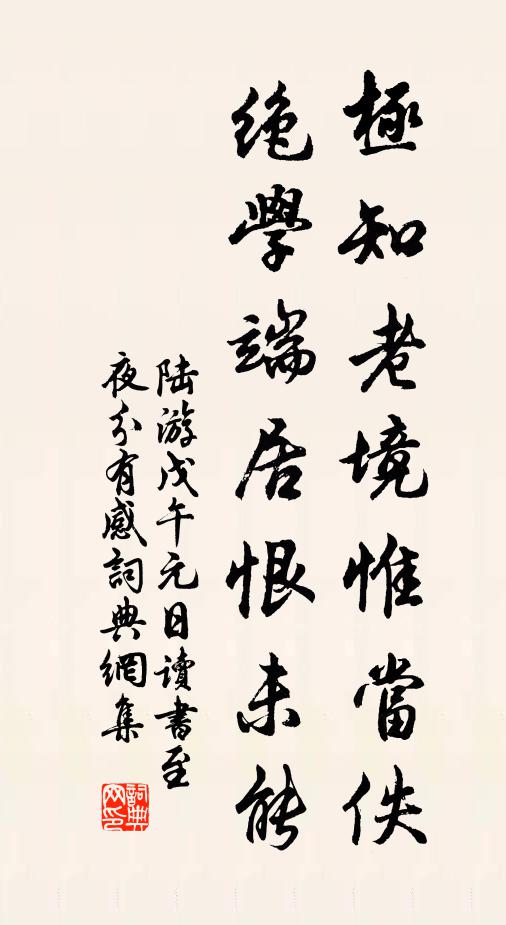 極知老境惟當佚
絶學端居恨未能
陆游戊午元日讀書至
夜分有感詞典網集
詞典
网印